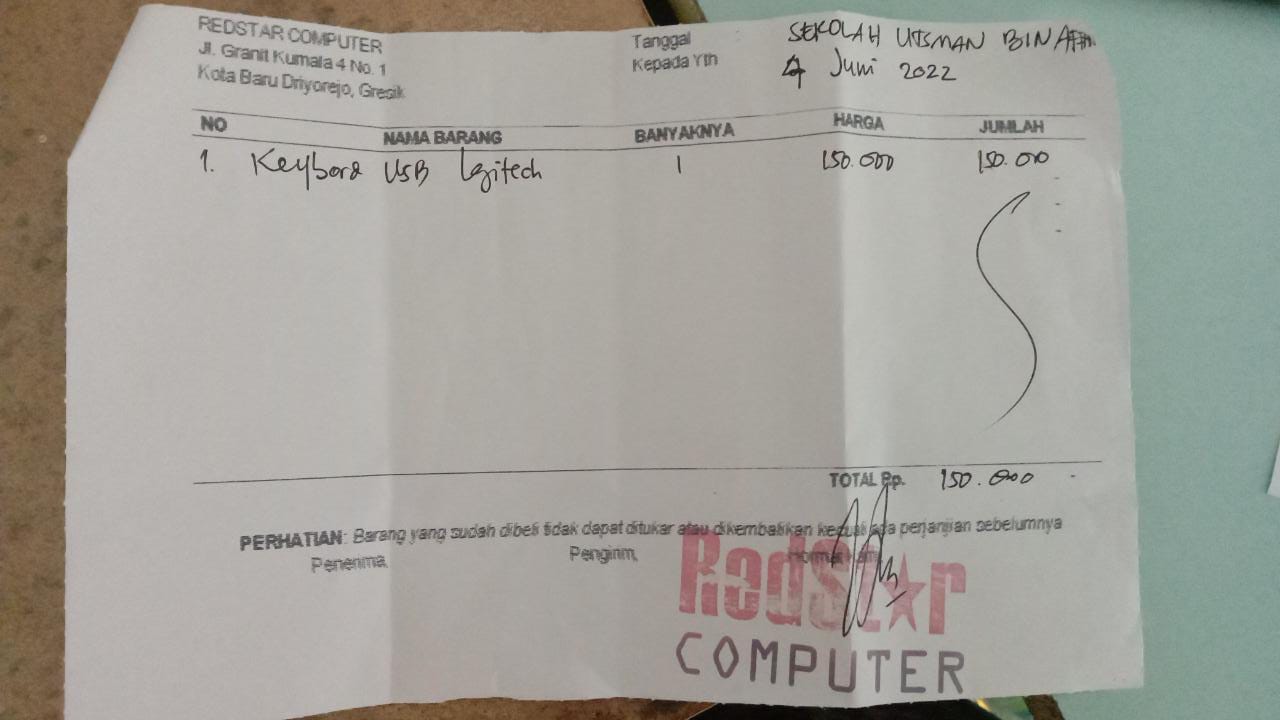 REDSTAR COMPUTER
Jl. Granit Kumala 4 No. 1
Kota Baru Driyorejo, Gresik
Tanggal SEKOLAH UTSMAN BIN
Kepada Yth 4 Juni 2022
NO NAMA BARANG BANYAKNYA HARGA JUMLAH
1. Keybord USB Lgitech 1 150.000 150.000
TOTAL Rp. 150.000
PERHATIAN: Barang yang sudah dibeli tidak dapat ditukar atau dikembalikan kecuali ada perjanjian sebelumnya
Penerima, Pengirim, Hormat kami
RedStar
COMPUTER